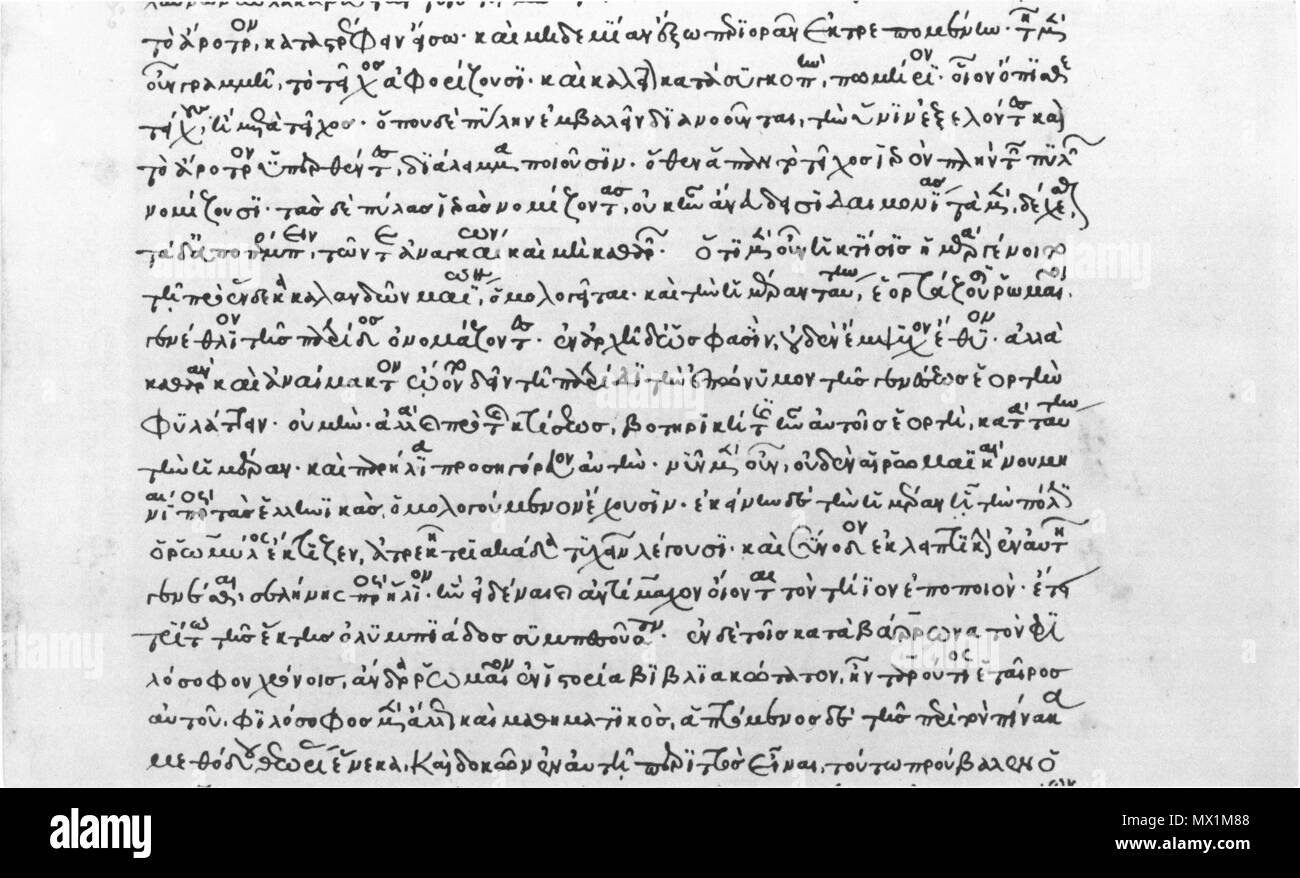 τὸ ἄροτρον, καταστρέφειν εἴσω· καὶ μηδεμίαν ἔξω περιορᾶν ἐκτρεπομένην· τῇ μὲν
οὖν γραμμῇ, τὸ τεῖχος ἀφορίζουσι· καὶ καλεῖται κατὰ συγκοπὴν, πωμήριον· οἷον ὄπισθε
τείχους, ἢ μετὰ τεῖχος· ὅπου δὲ πύλην ἐμβαλεῖν διανοοῦνται, τὴν ὕνιν ἐξελόντες καὶ
τὸ ἄροτρον ὑπερθέντες, διάλειμμα ποιοῦσιν· ὅθεν ἅπαν τὸ τεῖχος ἱερὸν πλὴν τῶν πυλῶν
νομίζουσι· τὰς δὲ πύλας ἱερὰς νομίζοντας, οὐκ ἦν ἄνευ δεισιδαιμονίας τὰ μὲν, δέχεσθαι,
τὰ δὲ ἀποπέμπειν, τῶν τε ἀναγκαίων καὶ μὴ καθαρῶν· ὅτι μὲν οὖν ἡ κτίσις ἡμέρᾳ γένοιτο
τῇ πρὸ ἕνδεκα καλανδῶν μαΐων, ὁμολογεῖται· καὶ τὴν ἡμέραν ταύτην, ἑορτάζουσι ῥωμαῖοι,
γενέθλιον τῆς πατρίδος ὀνομάζοντες· ἐν ἀρχῇ δέ ὥς φασιν, οὐδὲν ἔμψυχον ἔθυον· ἀλλὰ
καθαρὰν καὶ ἀναίμακτον ᾤοντο δεῖν τῇ πατρίδι τὴν ἐπώνυμον τῆς γενέσεως ἑορτὴν
φυλάττειν· οὐ μὴν ἀλλὰ καὶ πρὸ τῆς κτίσεως, βοτηρική τις ἦν αὐτοῖς ἑορτὴ, κατὰ ταύτην
τὴν ἡμέραν· καὶ παρίλια προσηγόρευον αὐτήν· νῦν μὲν οὖν, οὐδὲν αἱ ῥωμαϊκαὶ νουμη
νίαι πρὸς τὰς ἑλληνικὰς, ὁμολογούμενον ἔχουσιν· ἐκείνην δὲ τὴν ἡμέραν ᾗ τὴν πόλιν
ὁ ῥωμύλος ἔκτιζεν, ἀτρεκῆ τριακάδα τυχεῖν λέγουσι· καὶ σύνοδον ἐκλειπτικὴν ἐν αὐτῇ
γενέσθαι, σελήνης πρὸς ἥλιον· ἣν εἰδέναι καὶ ἀντίμαχον οἴονται τὸν τήϊον ἐποποιόν· ἔτει
τρίτω τῆς ἕκτης ὀλυμπιάδος συμπεσοῦσαν· ἐν δὲ τοῖς κατὰ βάρρωνα τὸν φι
λόσοφον χρόνοις, ἄνδρα ῥωμαίων ἐν ἱστορία βιβλιακώτατον, ἦν ταρούτιος ἑταῖρος
αὐτοῦ, φιλόσοφος μὲν ἄλλως καὶ μαθηματικὸς, ἁπτόμενος δὲ τῆς περὶ τὸν πίνακα
μεθόδου θεωρίας ἕνεκα, καὶ δοκῶν ἐν αὐτῇ περιττὸς εἶναι, τούτω προύβαλεν ὁ
alamy
Image ID: MX1M88
www.alamy.com